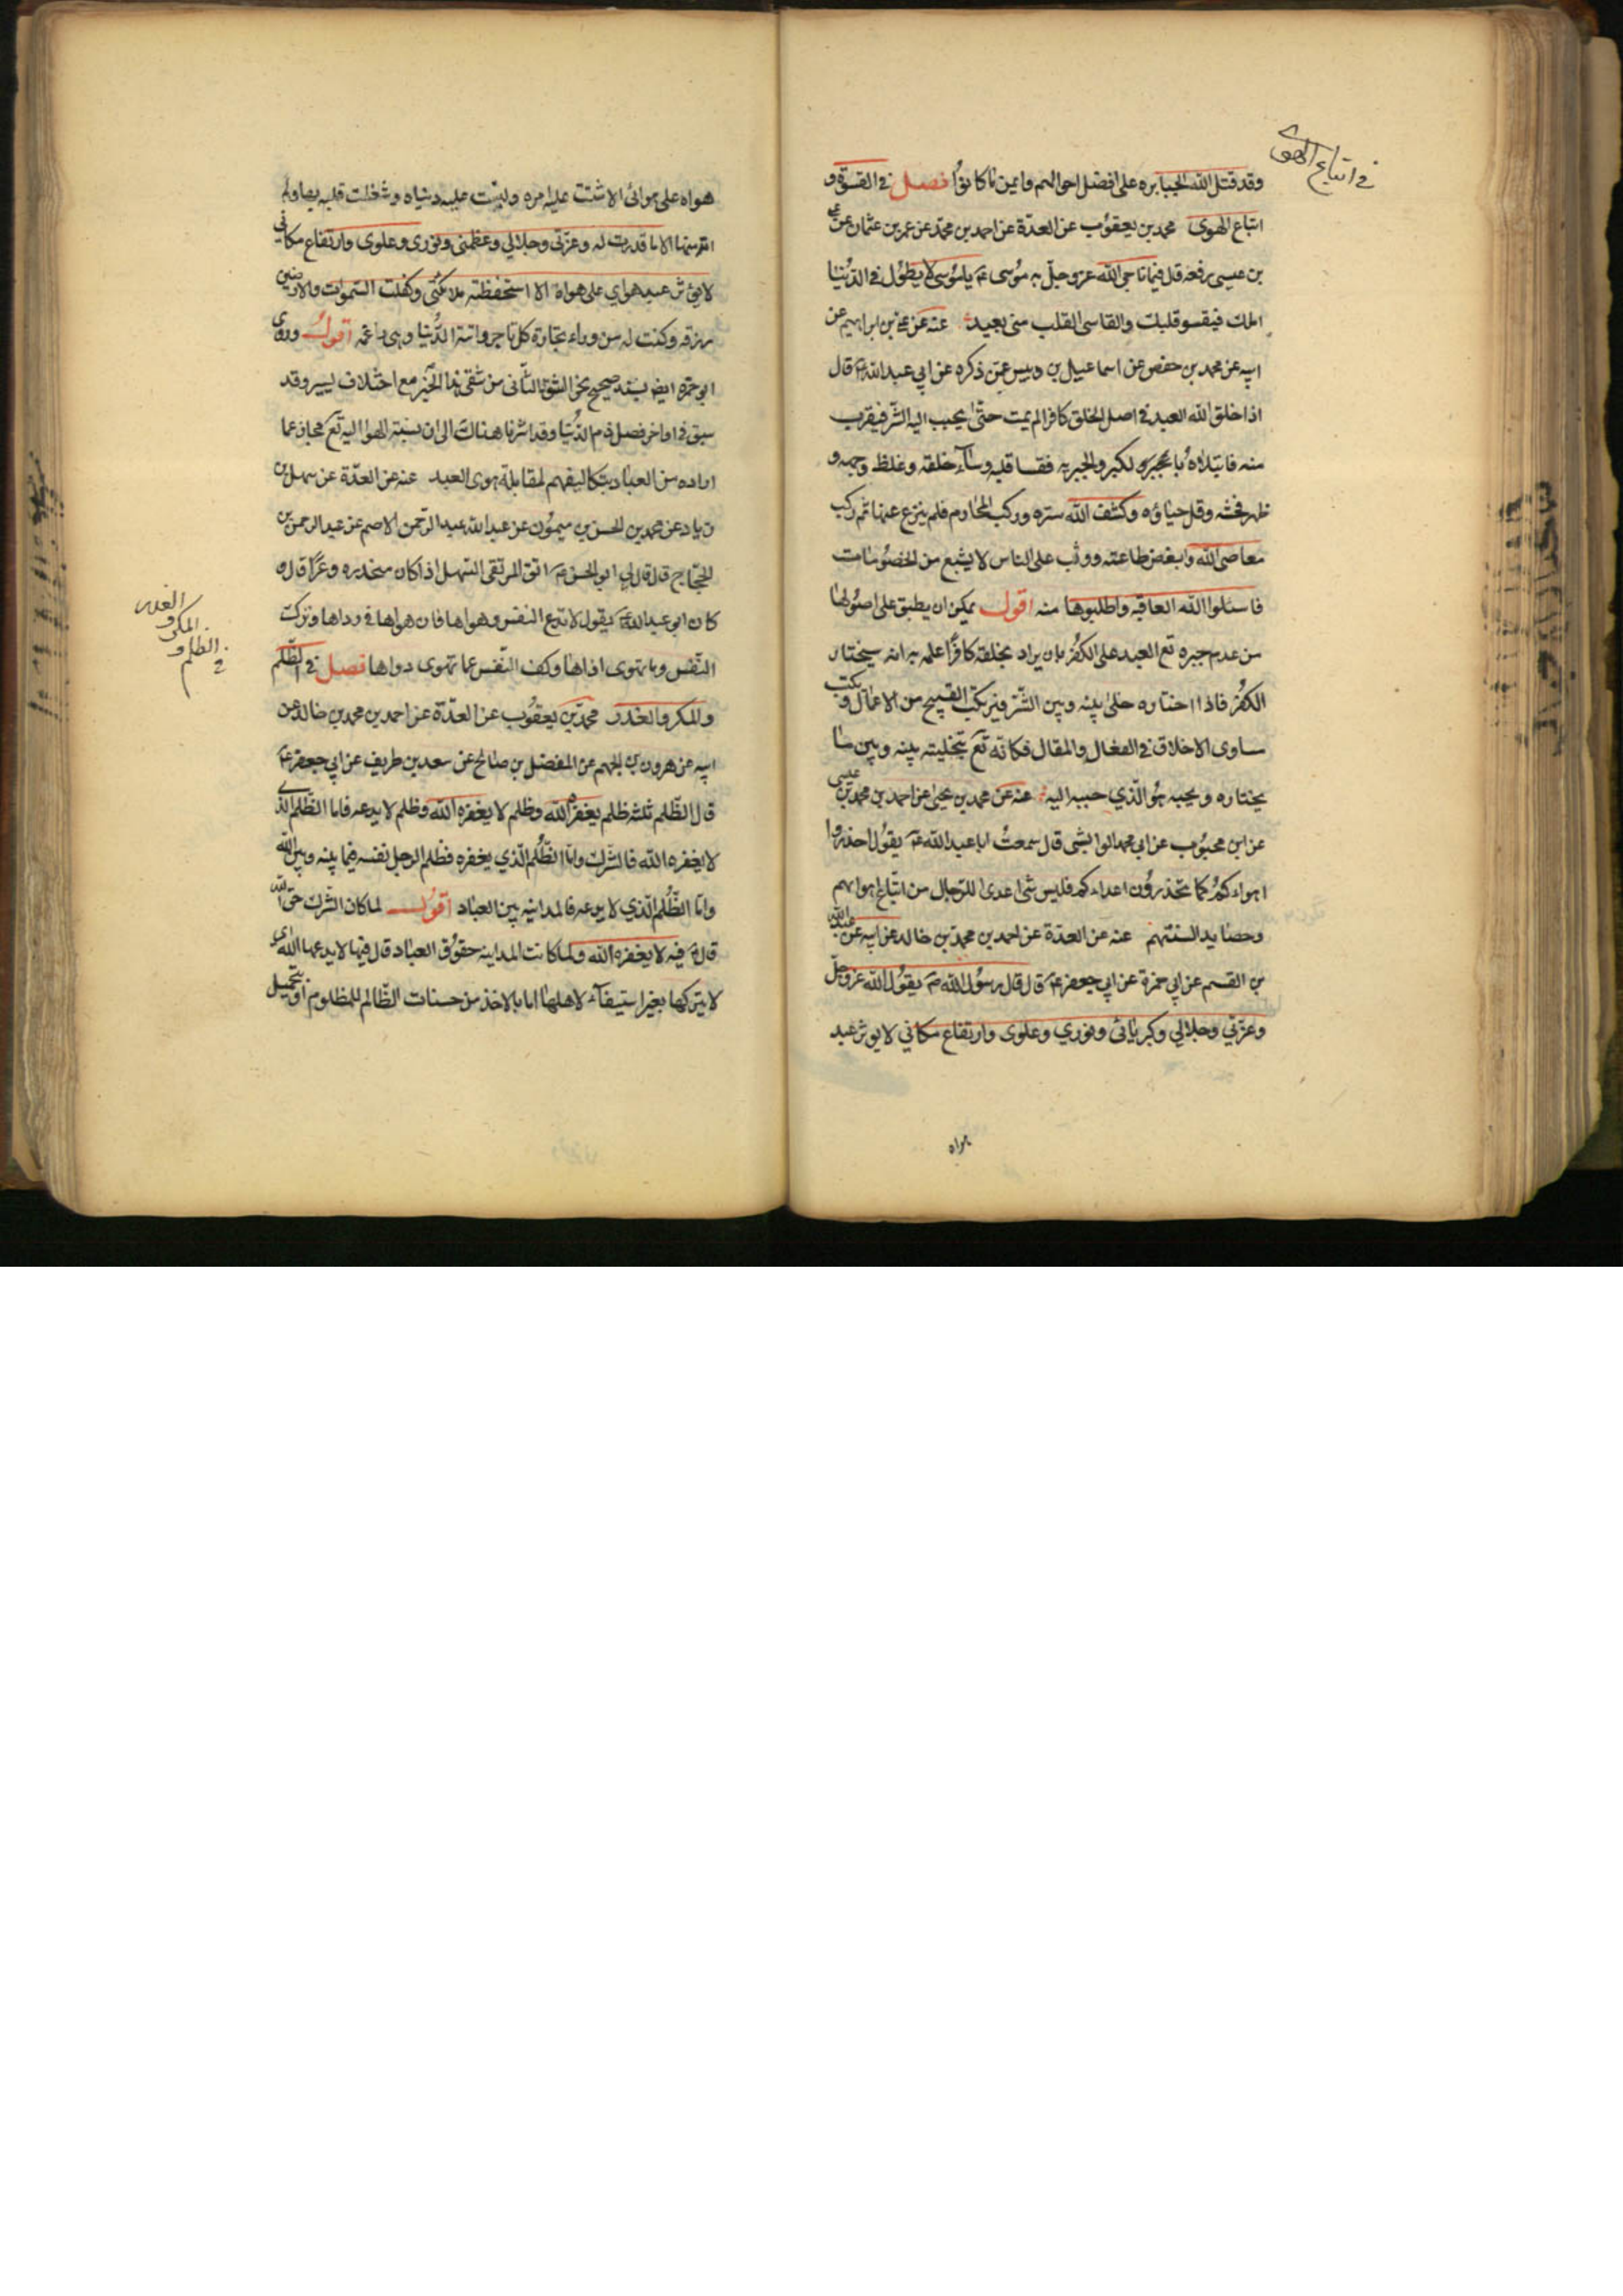 في اتباع الهوى
وقد قتل الله الجبابره على افضل احوالهم وايمن ما كانوا فصل في القسوة و
اتباع الهوى محمد بن يعقوب عن العدة عن احمد بن محمد عن عمر بن عثمان عن علي
بن عيسى رفعه قال فيما ناجى الله عز وجل به موسى ع يا موسى لا يطول في الدنيا
املك فيقسو قلبك والقاسى القلب منى بعيد عنه عن علي بن ابراهيم عن
ابيه عن محمد بن حفص عن اسماعيل بن دبيس عمن ذكره عن ابي عبد الله ع قال
اذا خلق الله العبد في اصل الخلق كافرا لم يمت حتى يحبب اليه الشر فيقرب
منه فابتلاه بالكبر والجبريه فقسا قلبه وساء خلقه وغلظ وجهه و
ظهر فحشه وقل حياؤه وكشف الله ستره وركب المحارم فلم ينزع عنها ثم ركب
معاصي الله وابغض طاعته ووثب على الناس لا يشبع من الخصومات
فاسئلوا الله العافيه واطلبوها منه اقول يمكن ان يطبق على اصولها
من عدم جبره تع العبد على الكفر بان يراد بخلقه كافرا علمه بانه سيختار
الكفر فاذا اختاره خلى بينه وبين الشر فيرتكب القبيح من الاعمال ويكتب
مساوى الاخلاق في الفعال والمقال فكانه تع بتخليته بينه وبين ما
يختاره ويحبه هو الذي حببه اليه عنه عن محمد بن يحيى عن احمد بن محمد بن عيسى
عن ابن محبوب عن ابي محمد الوابشي قال سمعت ابا عبد الله ع يقول احذروا
اهواءكم كما تحذرون اعداءكم فليس شئ اعدى للرجال من اتباع اهوائهم
وحصايد السنتهم عنه عن العدة عن احمد بن محمد بن خالد عن ابيه عن عبد الله
بن القسم عن ابي حمزة عن ابي جعفر ع قال قال رسول الله ص يقول الله عز وجل
وعزتي وجلالي وكبريائي ونوري وعلوى وارتفاع مكاني لا يوثر عبد
هواه
هواه على هوائى الا شتت عليه امره ولبست عليه دنياه وشغلت قلبه بها ولم
اته منها الا ما قدرت له وعزتي وجلالي وعظمتي ونوري وعلوى وارتفاع مكاني
لا يؤثر عبد هواي على هواه الا استحفظته ملائكتي وكفلت السموات والارضين
رزقه وكنت له من وراء تجارة كل تاجر واتته الدنيا وهي راغمه اقول وروى
ابو حمزه ايض بسند صحيح نحو الشق الثاني من شقى هذا الخبر مع اختلاف يسير وقد
سبق في اواخر فصل ذم الدنيا وقد اشرنا هناك الى ان نسبة الهوا اليه تع مجاز عما
اراده من العباد بتكاليفهم لمقابلة هوى العبد عنه عن العدة عن سهل بن
زياد عن محمد بن الحسن بن ميمون عن عبد الله بن عبد الرحمن الاصم عن عبد الرحمن بن
الحجاج قال قال لي ابو الحسن ع اتق المرتقى السهل اذا كان منحدره وعرا قال و
كان ابو عبد الله ع يقول لا تدع النفس وهواها فان هواها في رداها وترك
النفس وما تهوى اذاها وكف النفس عما تهوى دواها فصل في الظلم
والمكر والغدر محمد بن يعقوب عن العدة عن احمد بن محمد بن خالد عن
ابيه عن هرون بن الجهم عن المفضل بن صالح عن سعد بن طريف عن ابي جعفر ع
قال الظلم ثلثه ظلم يغفره الله وظلم لا يغفره الله وظلم لا يدعه فاما الظلم الذي
لا يغفره الله فالشرك واما الظلم الذي يغفره فظلم الرجل نفسه فيما بينه وبين الله
واما الظلم الذي لا يدعه فالمداينه بين العباد اقول لما كان الشرك حق الله
قال ع فيه لا يغفره الله ولما كانت المداينه حقوق العباد قال فيها لا يدعها الله اي
لا يتركها بغير استيفاء لاهلها اما بالاخذ من حسنات الظالم للمظلوم او تحميل
في الظلم و
المكر و
الغدر